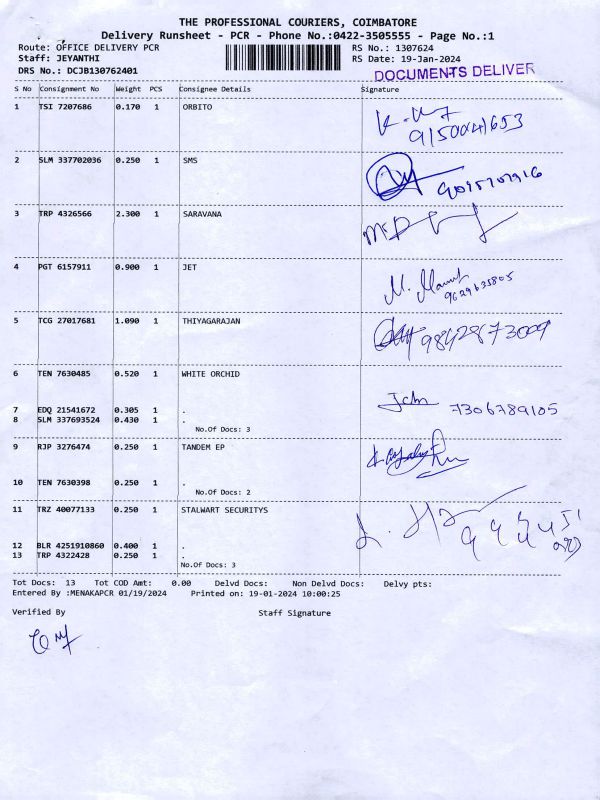 THE PROFESSIONAL COURIERS, COIMBATORE
Delivery Runsheet - PCR - Phone No.:0422-3505555 - Page No.:1
Route: OFFICE DELIVERY PCR RS No.: 1307624
Staff: JEYANTHI RS Date: 19-Jan-2024
DRS No.: DCJB130762401 DOCUMENTS DELIVER
S No Consignment No Weight PCS Consignee Details Signature
1 TSI 7207686 0.170 1 ORBITO
9150041653
2 SLM 337702036 0.250 1 SMS
3 TRP 4326566 2.300 1 SARAVANA
4 PGT 6157911 0.900 1 JET
9629635805
5 TCG 27017681 1.090 1 THIYAGARAJAN
9842873009
6 TEN 7630485 0.520 1 WHITE ORCHID
7306789105
7 EDQ 21541672 0.305 1 .
8 SLM 337693524 0.430 1 .
No.Of Docs: 3
9 RJP 3276474 0.250 1 TANDEM EP
10 TEN 7630398 0.250 1 .
No.Of Docs: 2
11 TRZ 40077133 0.250 1 STALWART SECURITYS
12 BLR 4251910860 0.400 1 .
13 TRP 4322428 0.250 1 .
No.Of Docs: 3
Tot Docs: 13 Tot COD Amt: 0.00 Delvd Docs: Non Delvd Docs: Delvy pts:
Entered By :MENAKAPCR 01/19/2024 Printed on: 19-01-2024 10:00:25
Verified By Staff Signature